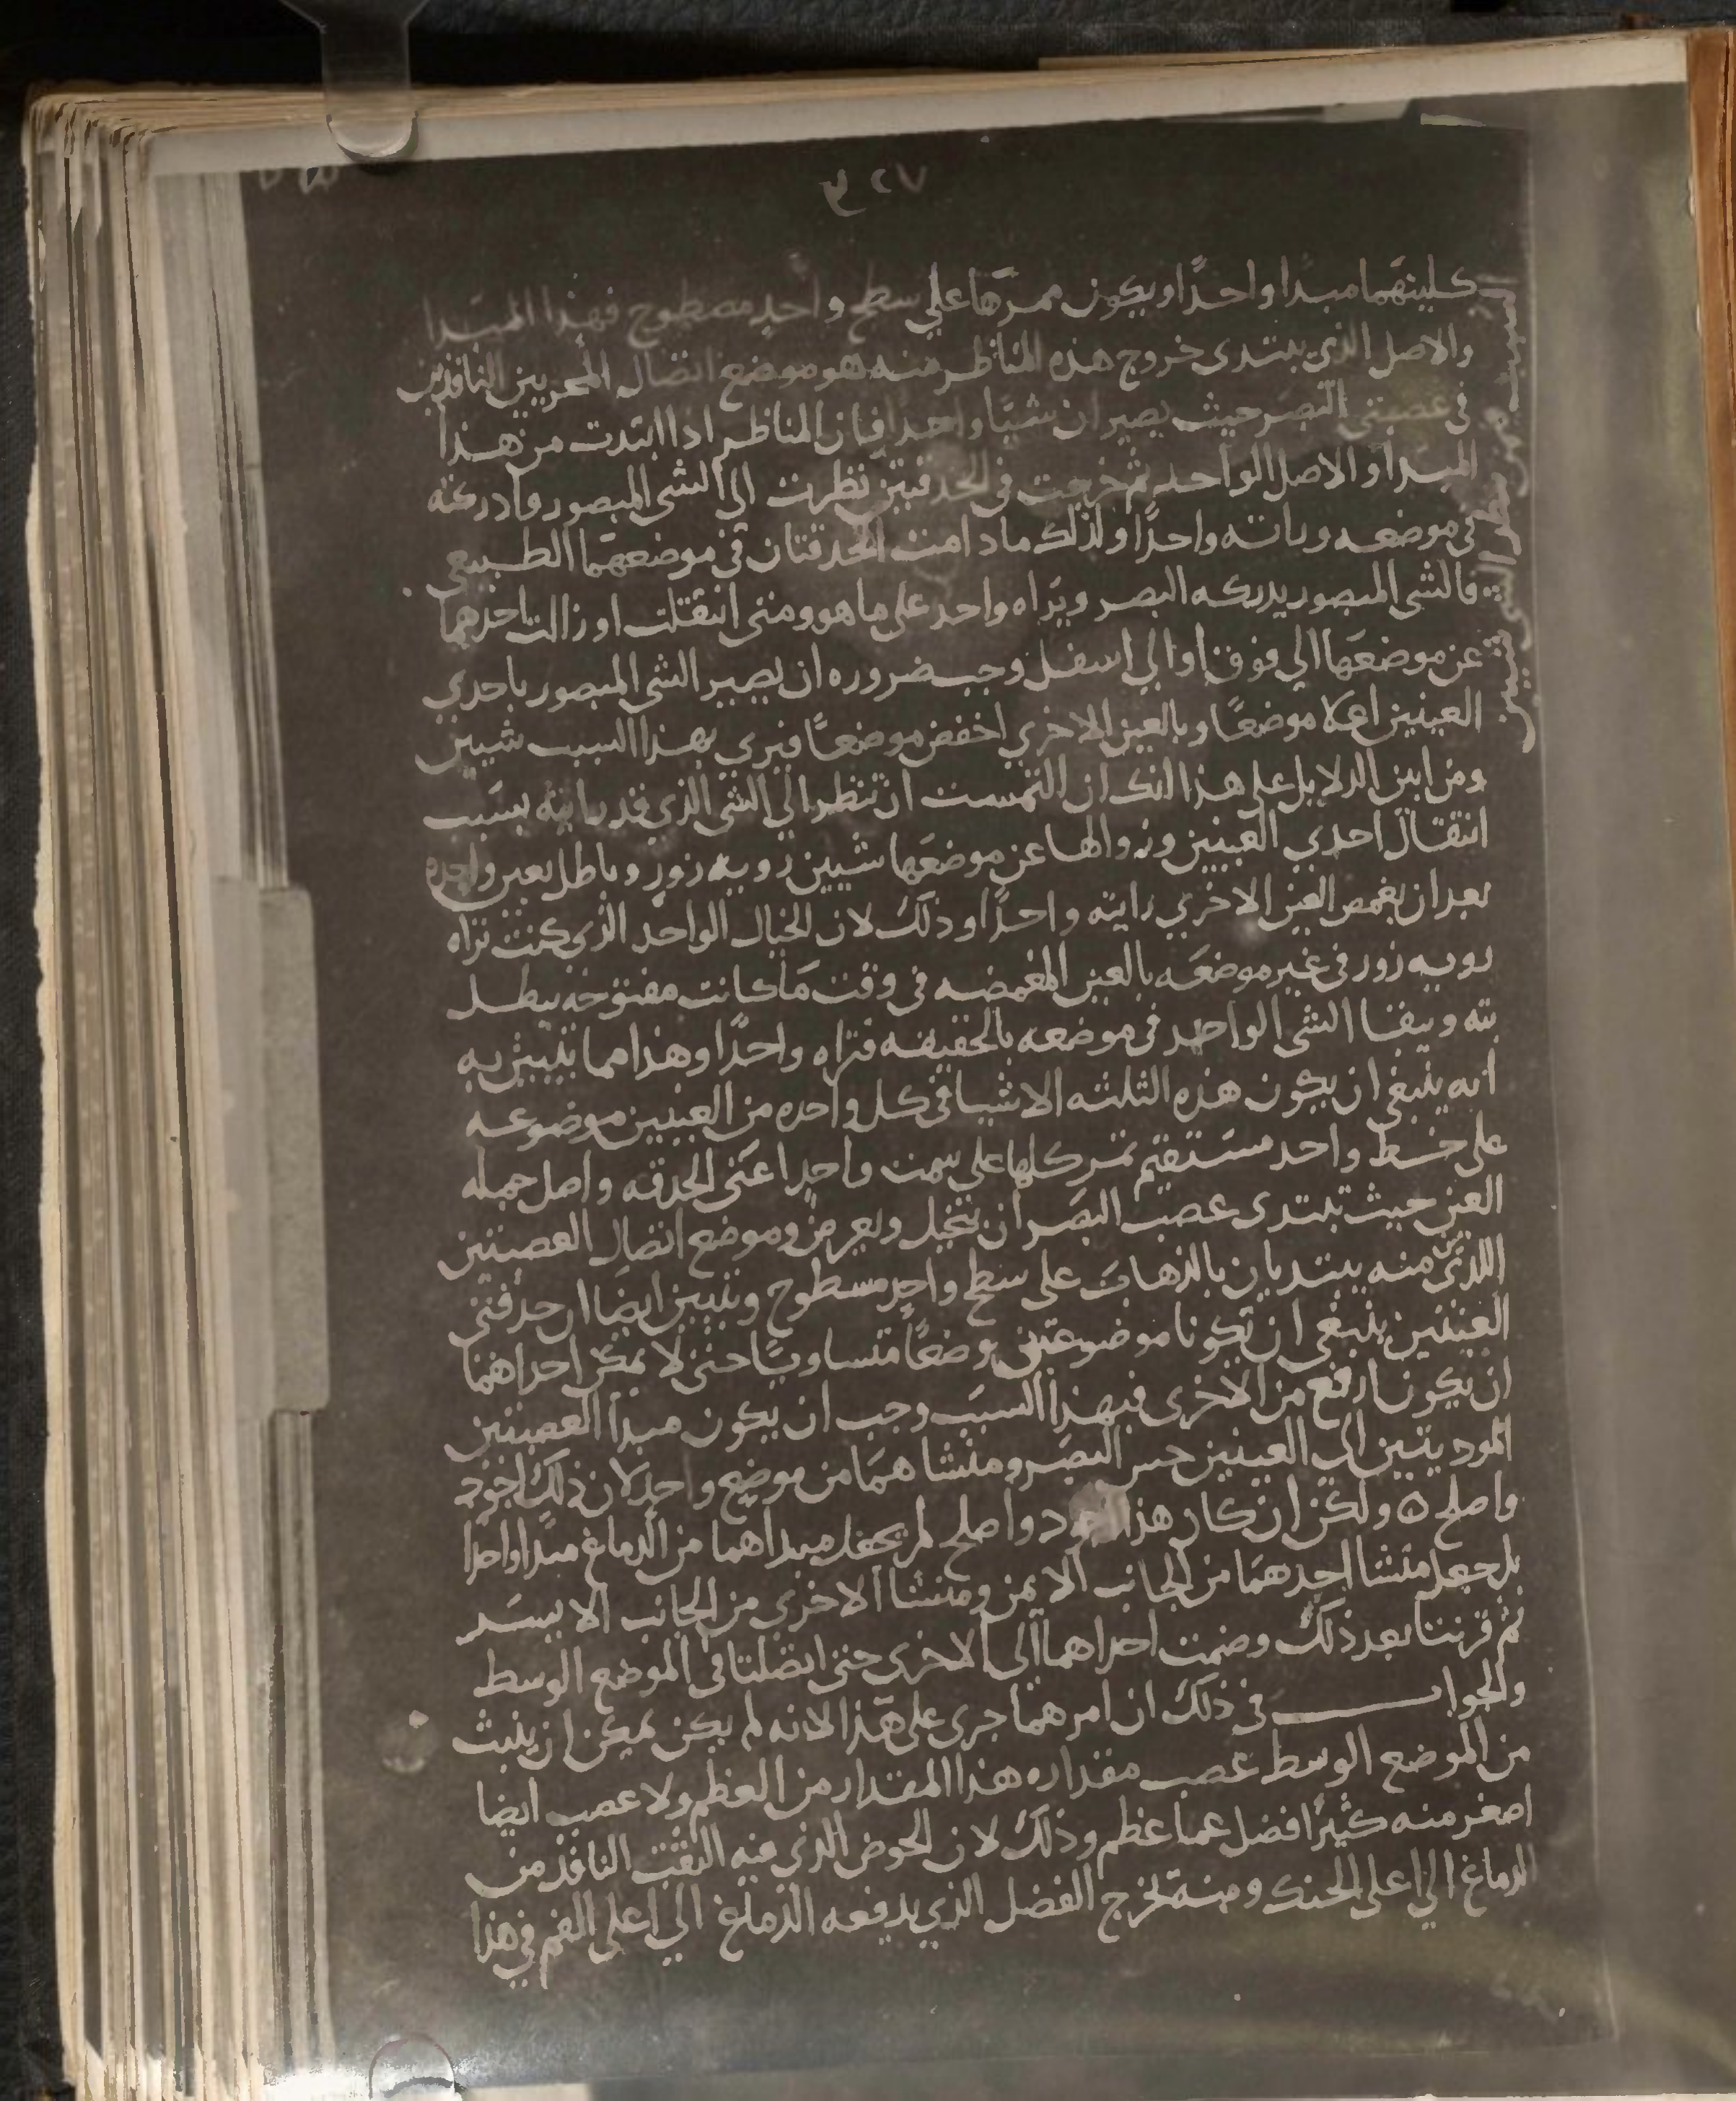 ٤٢٧
كليتهما مبدا واحدًا ويكون ممرها على سطح واحد مصطوح فهذا المبدا
والاصل الذي يبتدى خروج هذه المناظر منه هو موضع اتصال المجريين النافذين
فى عصبتى البصر حيث يصيران شيًا واحدا فان المناظر اذا ابتدت من هذا
المبدا والاصل الواحد ثم خرجت فى الحدقتين نظرت الى الشى المبصور وادركته
فى موضعه وباته واحدًا ولذلك مادامت الحدقتان فى موضعهما الطبيعى
فالشى المبصور يدركه البصر ويراه واحد على ما هو ومتى انتقلت او زالت احدهما
عن موضعها الى فوق او الى اسفل وجب ضروره ان يصير الشى المبصور باحدي
العينين اعلا موضعًا وبالعين الاخرى اخفض موضعًا فيرى بهذا السبب شيين
ومن ابين الدلايل على هذا انك ان التمست ان تنظر الى الشى الذي قد رايته بسبب
انتقال احدي العينين وزوالها عن موضعها شيين رويه زور وباطل بعين واحده
بعد ان يغمض العين الاخرى رايته واحدًا وذلك لان الخيال الواحد الذى كنت تراه
رويه زور فى غير موضعه بالعين المغمضه فى وقت ما كانت مفتوحه يبطل
بته ويبقا الشى الواحد فى موضعه بالحقيقه فتراه واحدًا وهذا مما يتبين به
انه ينبغى ان يكون هذه الثلثه الاشيا فى كل واحده من العينين موضوعه
على خط واحد مستقيم تمر كلها على سمت واحد اعنى الحدقه واصل جمله
العين حيث يبتدى عصب البصر ان ينحل ويعرض وموضع اتصال العصبتين
اللذى منه يبتديان بالذهاب على سطح واحد مسطوح وتبين ايضا ان حدقتى
العينين ينبغى ان تكونا موضوعتين وضعًا متساويًا حتى لا يمكن احداهما
ان يكون ارفع من الاخرى فبهذا السبب وجب ان يكون مبدا العصبتين
الموديتين الى العينين حس البصر ومنشاهما من موضع واحد لان ذلك اجود
واصلح ٥ ولكن ان كان هذا اجود واصلح لم يجعل مبداهما من الدماغ مبدا واحدا
بل جعل منشا احدهما من الجانب الايمن ومنشا الاخرى من الجانب الايسر
ثم قرنتا بعد ذلك وضمت احداهما الى الاخرى حتى اتصلتا فى الموضع الوسط
والجواب فى ذلك ان امرهما جرى على هذا لانه لم يكن يمكن ان ينبت
من الموضع الوسط عصب مقداره هذا المقدار من العظم ولا عصب ايضا
اصغر منه كثيرًا فضل عما عظم وذلك لان الحوض الذى فيه الثقب النافذ من
الدماغ الى اعلى الحنك ومنه يخرج الفضل الذي يدفعه الدماغ الى اعلى الفم فى هذا